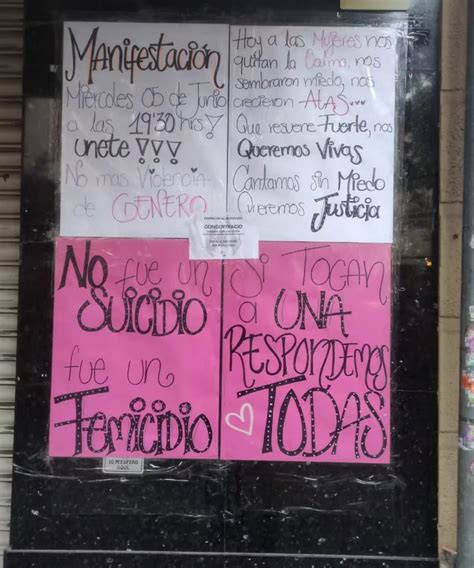 Manifestación
Miercoles 05 de Junio
a las 19'30 hrs!
unete!!!
No mas Violencia
de GENERO
Hoy a las Mujeres nos
quitan la Calma, nos
sembraron miedo, nos
crecieron ALAS...
Que resuene Fuerte, nos
Queremos Vivas
Cantamos sin Miedo
Queremos Justicia
CONCENTRACIO
No fue un
Suicidio
fue un
Femicidio
Si Tocan
a UNA
RESPONDEMOS
TODAS